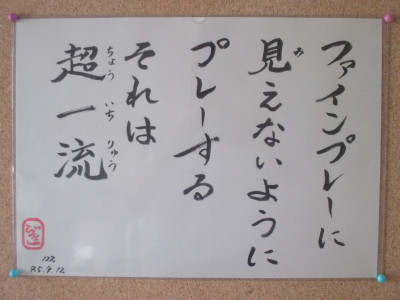 ファインプレーに
見えないように
み
プレーする
それは
超一流
ちょう いち りゅう
122.
R5.9.12